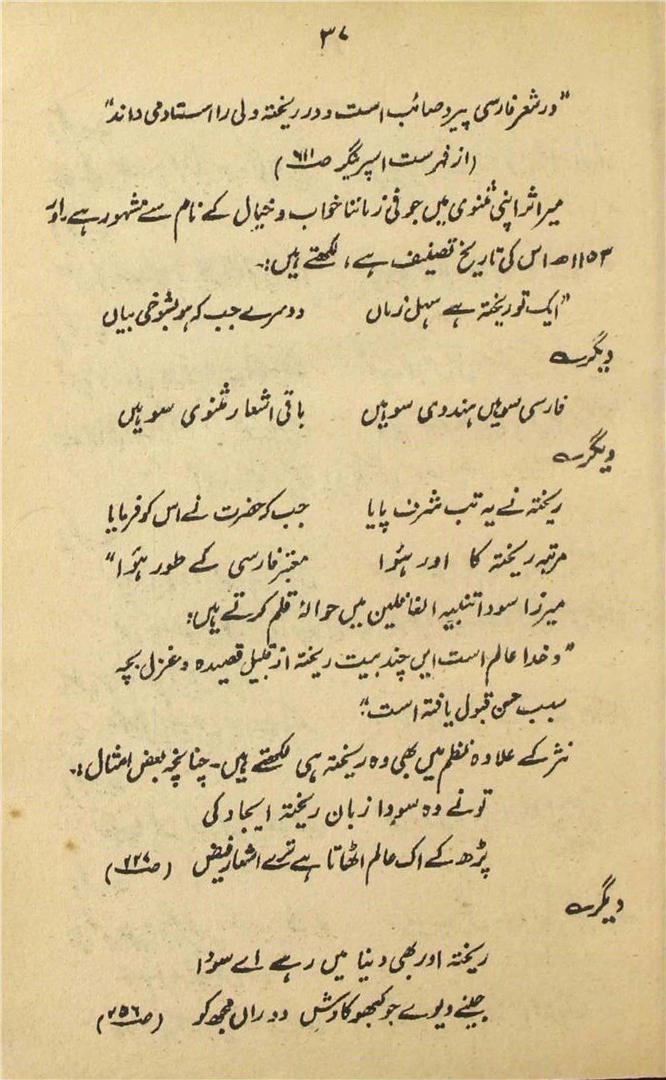 ۳۷
"در شعر فارسی پیرو صائب است و در ریختہ ولی را استاد می داند"
(از فہرست اسپرنگر صـ۶۱۱)
میر اثر اپنی مثنوی میں جو فی زماننا خواب و خیال کے نام سے مشہور ہے اور
۱۱۵۳ھ اس کی تاریخ تصنیف ہے، لکھتے ہیں:۔
"ایک تو ریختہ ہے سہل زباں دوسرے جب کہ ہو بشوخی بیاں
دیگرے
فارسی سو ہیں ہندوی سو ہیں باقی اشعار مثنوی سو ہیں
دیگرے
ریختہ نے یہ تب شرف پایا جب کہ حضرت نے اس کو فرمایا
مرتبہ ریختہ کا اور ہؤا معتبر فارسی کے طور ہؤا"
میرزا سودا تنبیہ الغافلین میں حوالۂ قلم کرتے ہیں:
"و خدا عالم است ایں چند بیت ریختہ از قبیل قصیدہ و غزل بچہ
سبب حسن قبول یافتہ است"۔
نثر کے علاوہ نظم میں بھی وہ ریختہ ہی لکھتے ہیں۔ چنانچہ بعض امثال:۔
تو نے وہ سودا زبان ریختہ ایجاد کی
پڑھ کے اک عالم اٹھاتا ہے ترے اشعار فیض (صـ۲۲۷)
دیگرے
ریختہ اور بھی دنیا میں رہے اے سودا
جینے دیوے جو کبھو کاوش دوراں مجھ کو (صـ۲۵۶)